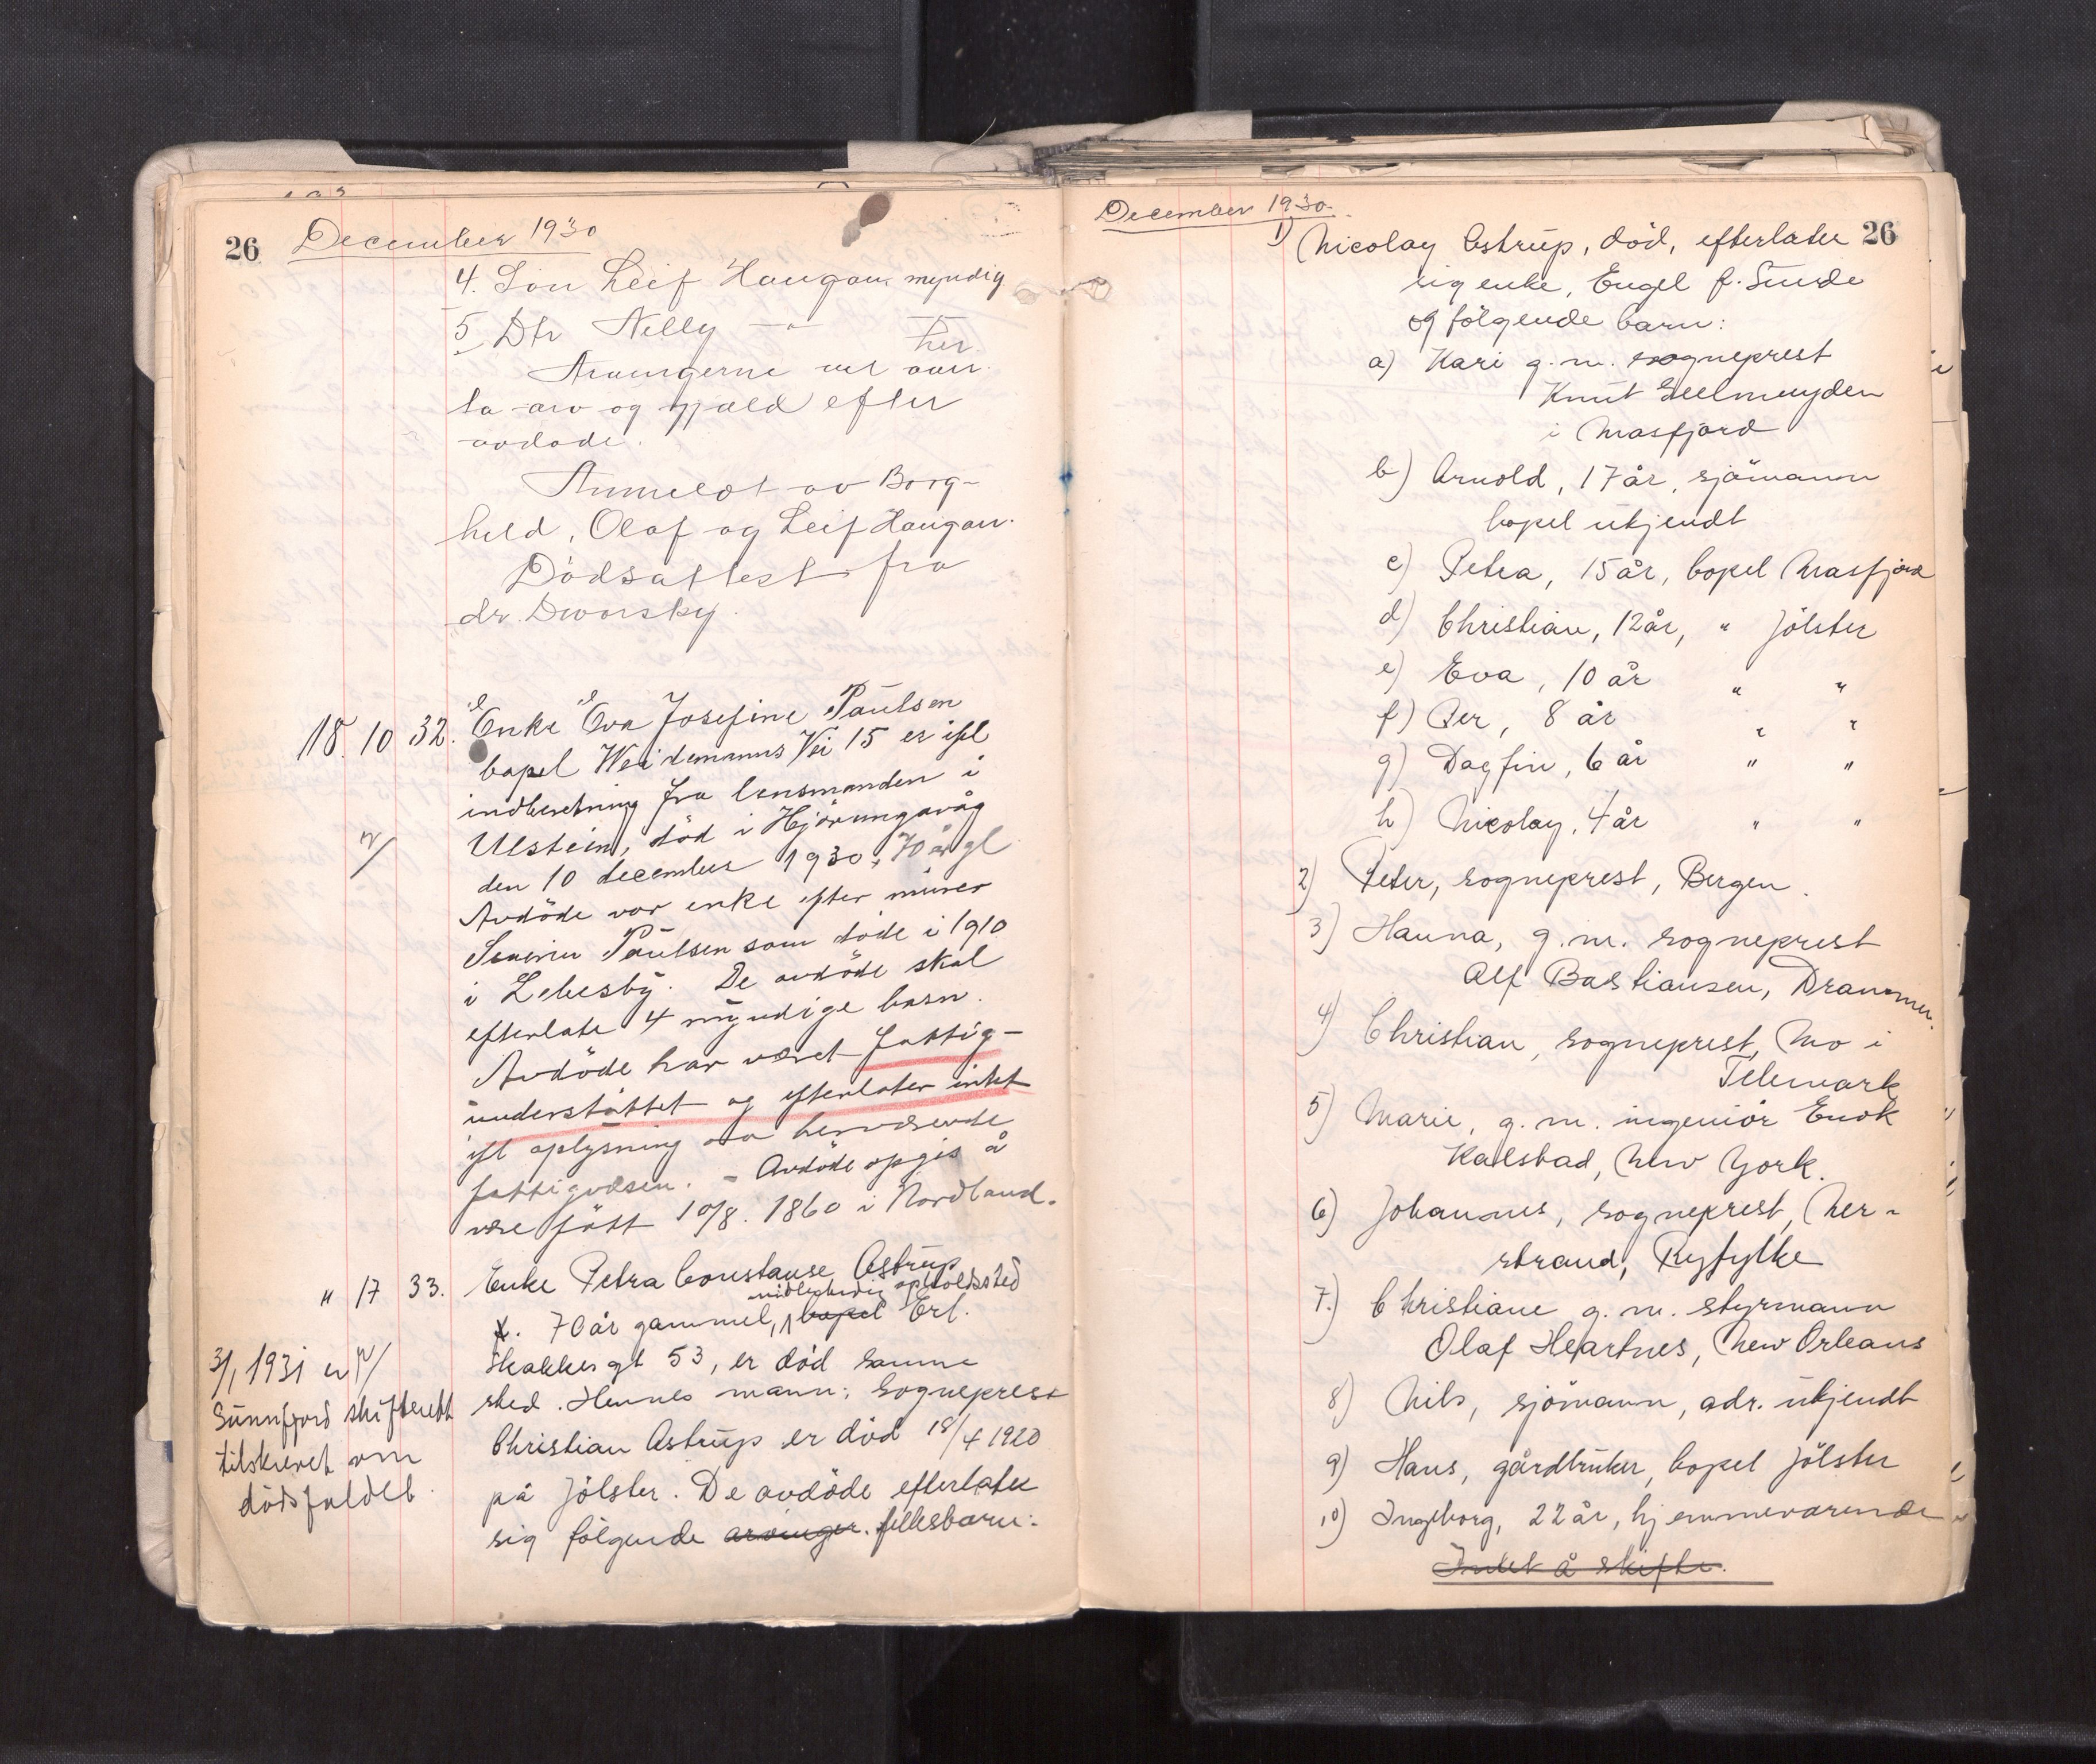 26 December 1930
4. Sön Leif Haugan myndig
5. Dtr Nelly — " — her
Arvingerne vil over-
ta arv og gjæld efter
avdøde.
Anmeldt av Borg-
hild, Olaf og Leif Haugan.
Dödsattest fra
dr. Dworsky.
18. 10 32. Enke Eva Josefine Paulsen
bopel Weidemanns Vei 15 er ifl
indberetning fra lensmanden i
Ulstein, död i Hjörungavåg
den 10 december 1930, 70 år gl
Avdöde var enke efter murer
Paulsen som döde i 1910
i Lebesby. De avdöde skal
efterlate 4 myndige barn.
Avdöde har været fattig-
understöttet og efterlater intet
ifl oplysning av herværende
fattigvæsen. - Avdöde opgis å
være fött 10/8. 1860 i Nordland.
" 17 33. Enke Petra Constanse Astrup
midlertidig opholdssted
f. 70 år gammel, bopel Erl.
Skakkes gt 53, er död samme
sted. Hennes mann: Sogneprest
Christian Astrup er död 18/4 1920
på Jölster. De avdöde efterlater
sig fölgende arvinger. fellesbarn:
3/1 1931 er
Sunnfjord skifterett
tilskrevet om
dödsfaldet.
December 1930.
26
1) Nicolay Astrup, död, efterlater
sig enke, Engel f. Sunde
og fölgende barn:
a) Kari g.m. sogneprest
Knut Geelmuyden
i Masfjord
b) Arnold, 17 år, sjömann
bopel ukjendt
c) Petra, 15 år, bopel Masfjord
d) Christian, 12 år, " Jölster
e) Eva, 10 år " "
f) Per, 8 år " "
g) Dagfin, 6 år " "
h) Nicolay, 4 år " "
2) Peter, sogneprest, Bergen.
3) Hanna, g.m. sogneprest
Alf Bastiansen, Drammen.
4) Christian, sogneprest, Mo i
Telemark
5) Marie, g.m. ingeniör Enok
Kalsbad, New York.
6) Johannes, sogneprest, Ner-
strand, Ryfylke
7.) Christiane g.m. styrmann
Olaf Heartnes, New Orleans
8) Nils, sjömann, adr. ukjendt
9) Hans, gårdbruker, bopel Jölster
10) Ingeborg, 22 år, hjemmeværende
Intet å skifte.